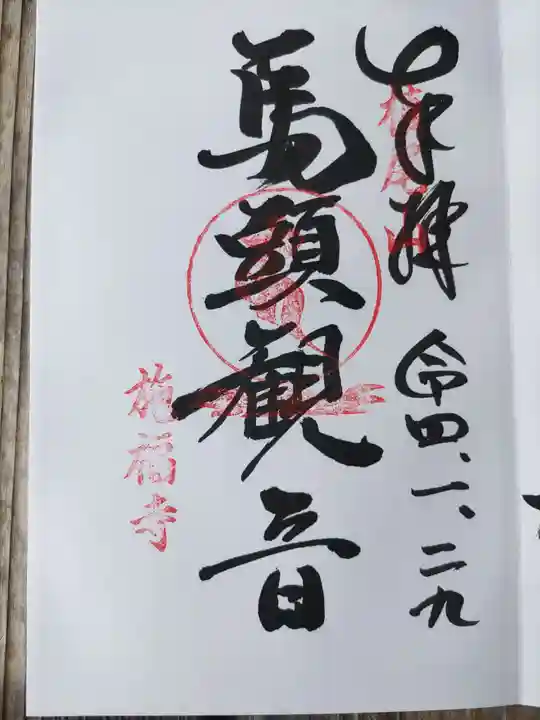 奉拝 令四、一、二九
槇尾山
馬頭観音
施福寺